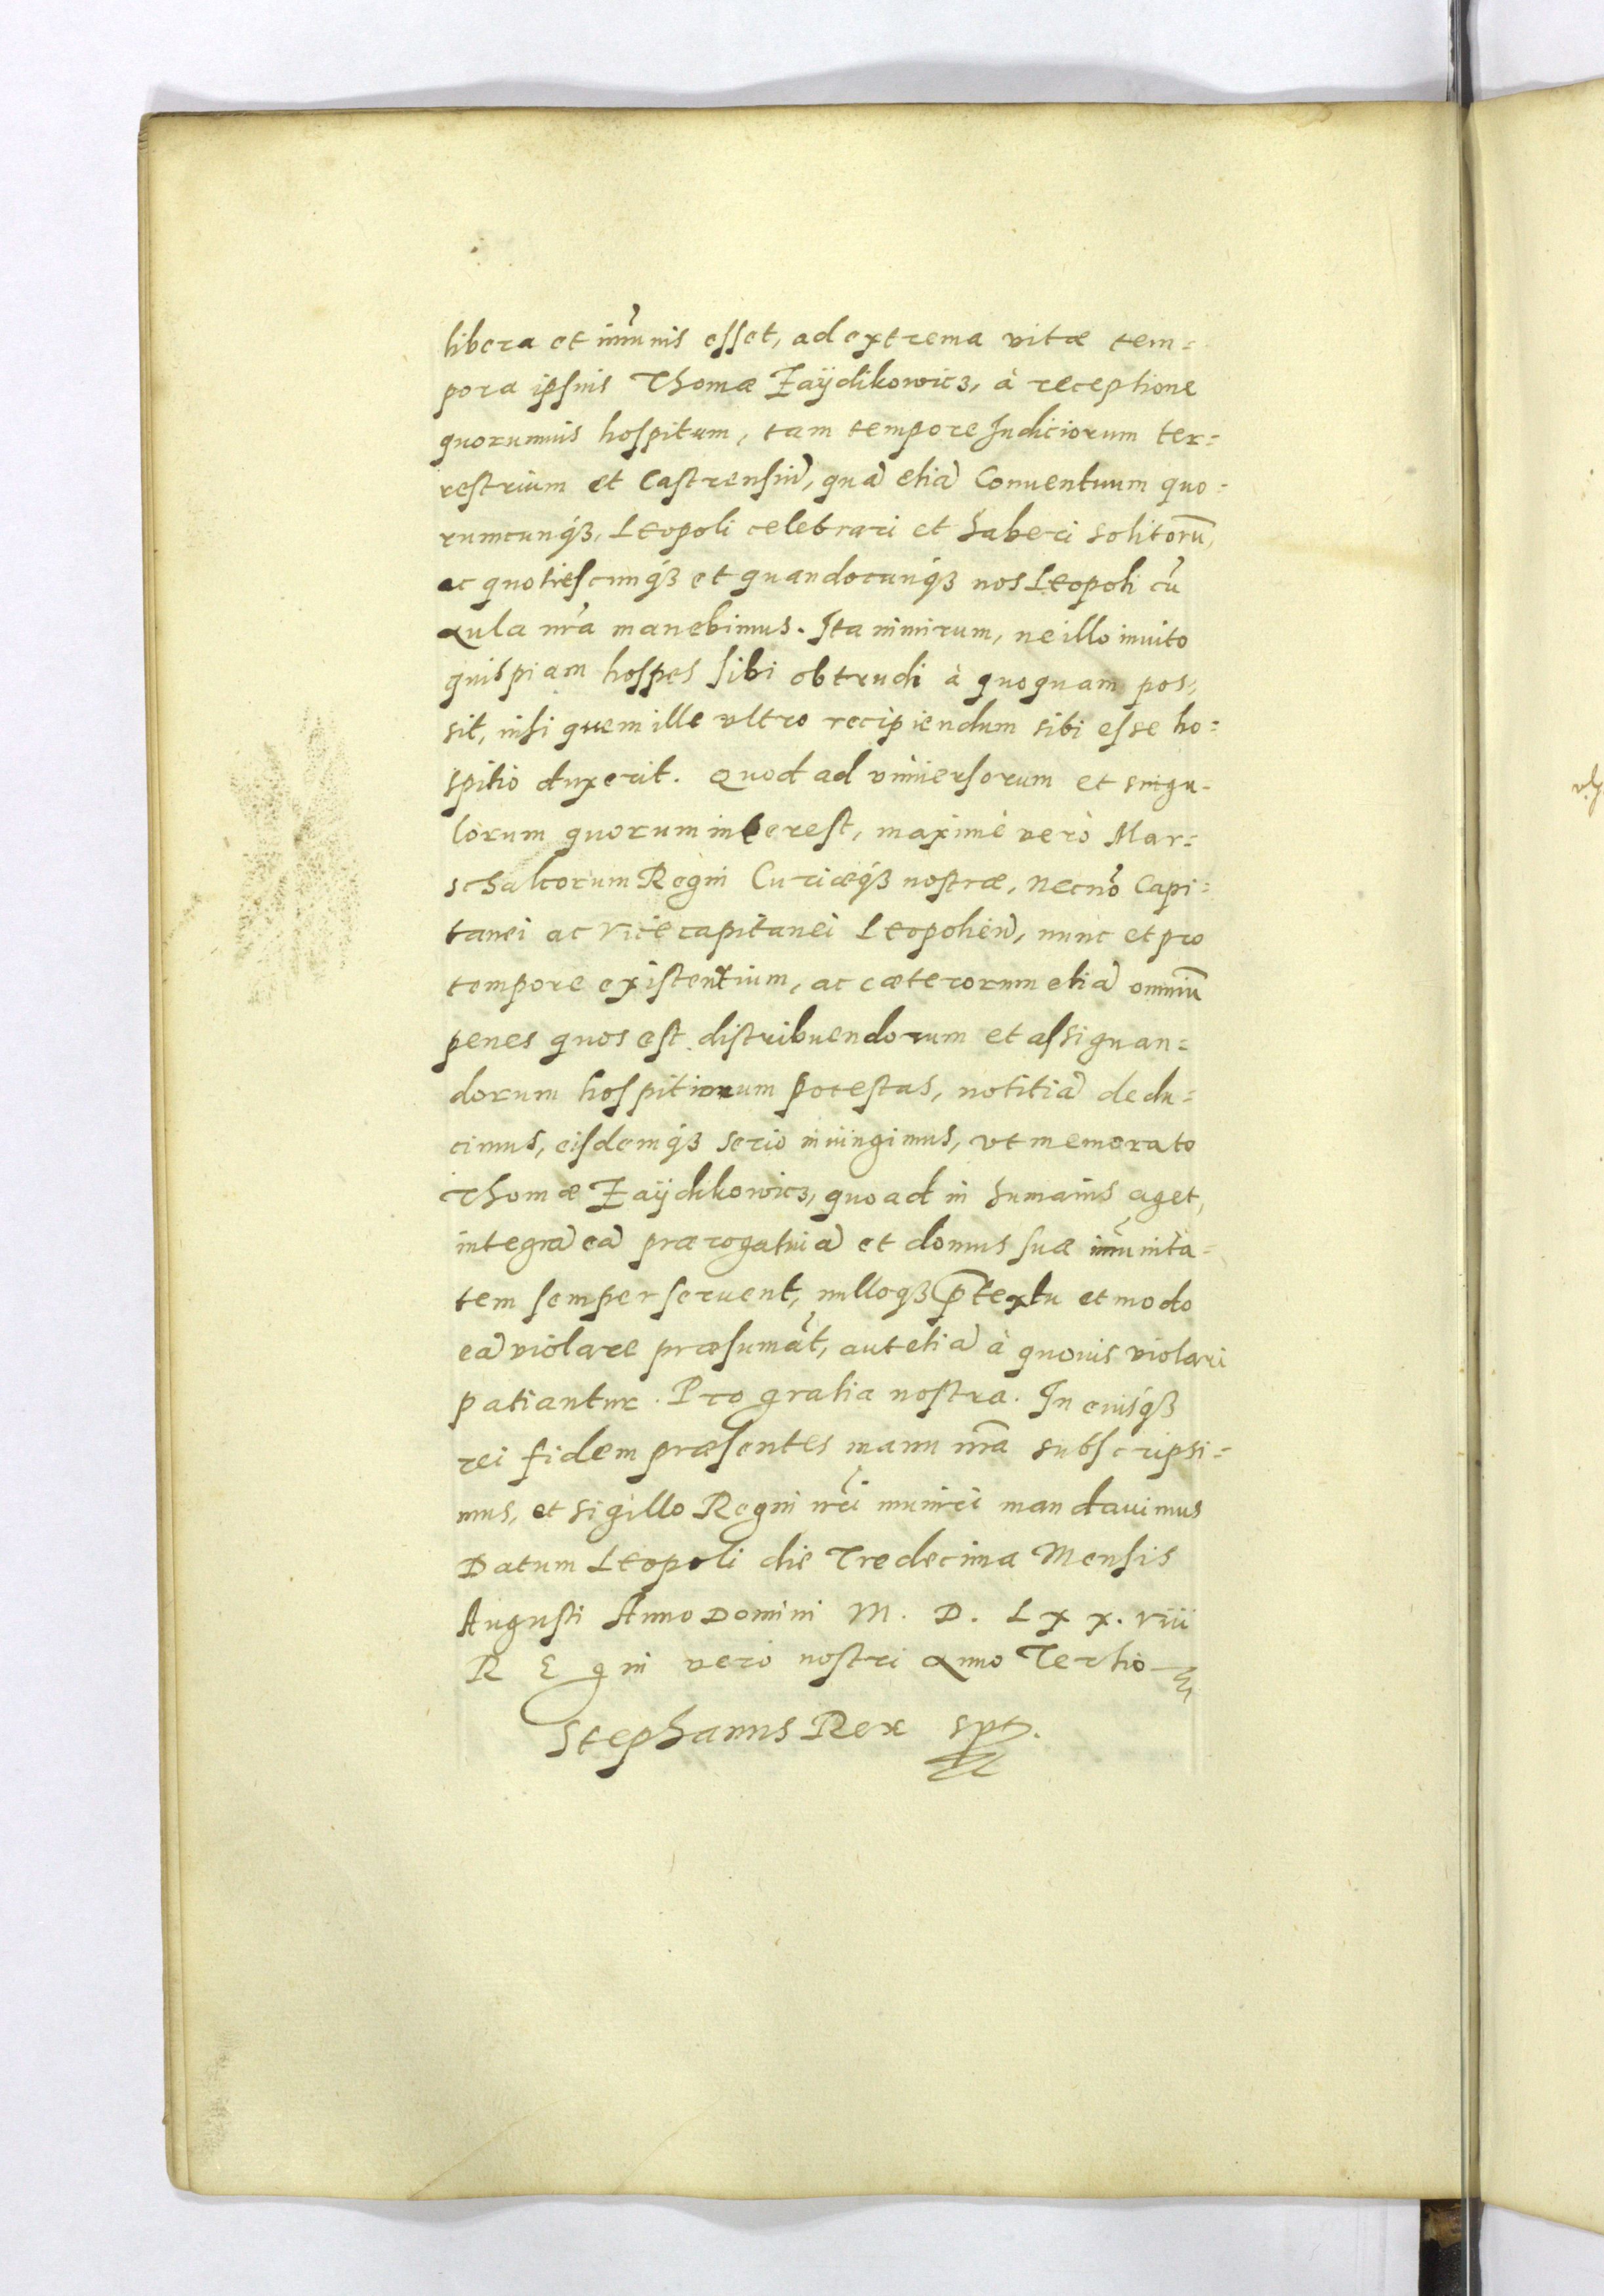 libera et im̃unis esset, ad extrema vitæ tem=
pora ipsius Thomæ Zaÿdikowicz, à receptione
quorumuis hospitum, tam tempore Judiciorum ter=
restrium et Castrensiũ, quã etiã Conuentuum quo=
rumcunqȝ, Leopoli celebrari et haberi solitorũ,
ac quotiescunqȝ et quandocunqȝ nos Leopoli cũ
Aula nr̃a manebimus. Ita nimirum, ne illo inuito
quispiam hospes sibi obtrudi à quoquam pos,
sit, nisi quem ille vltro recipiendum sibi esse ho=
spitio duxerit. Quod ad vniuersorum et singu=
lorum quorum interest, maximè verò Mar=
schalcorum Regni Curiæqȝ nostræ, necnõ Capi=
tanei ac Vicecapitanei Leopolieñ, nunc et pro
tempore existentium, ac cæterorum etiã omniũ
penes quos est distribuendorum et assignan=
dorum hospitiorum potestas, notitiã dedu=
cimus, eisdemqȝ serio iniungimus, vt memorato
Thomæ Zaÿdikowicz, quoad in humanis aget,
integrã eã prærogatiuã et domus suæ im̃unita=
tem semper seruent, nulloqȝ p̃textu et modo
eã violare præsumãt, aut etiã à quouis violari
patiantur. Pro gratia nostra. In cuiusqȝ
rei fidem præsentes manu nr̃a subscripsi=
mus, et sigillo Regni nr̃i muniri mandauimus
Datum Leopoli die Tredecima Mensis
Augusti Anno Domini M. D. Lxx. viii
REgni vero nostri Anno Tertio
Stephanus Rex spt.